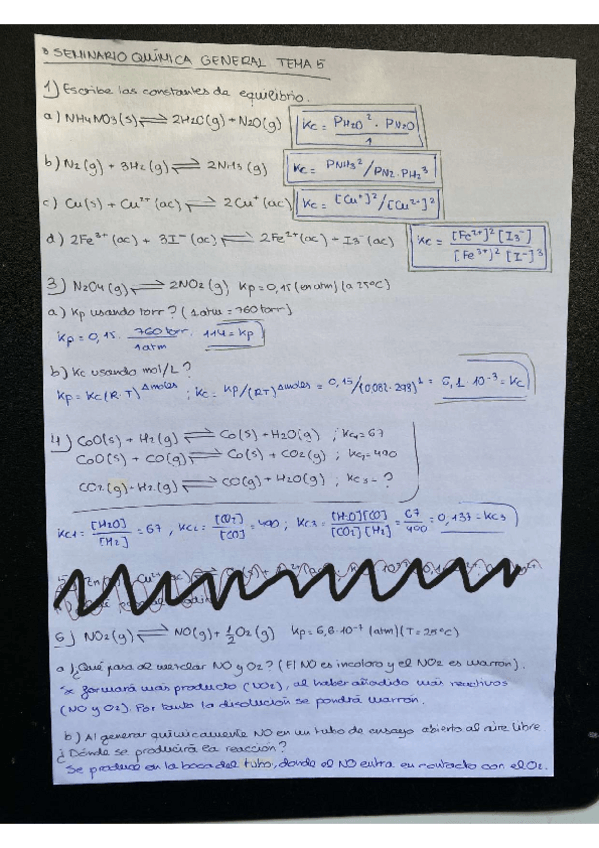 SEMINARIO QUÍMICA GENERAL TEMA 5
1) Escribe las constantes de equilibrio.
a) NH4NO3(s) ⇌ 2H2O(g) + N2O(g) Kc = PH2O² · PN2O / 1
b) N2(g) + 3H2(g) ⇌ 2NH3(g) Kc = PNH3² / PN2 · PH2³
c) Cu(s) + Cu²⁺(ac) ⇌ 2Cu⁺(ac) Kc = [Cu⁺]² / [Cu²⁺]²
d) 2Fe³⁺(ac) + 3I⁻(ac) ⇌ 2Fe²⁺(ac) + I3⁻(ac) Kc = [Fe²⁺]² [I3⁻] / [Fe³⁺]² [I⁻]³
3) N2O4(g) ⇌ 2NO2(g) Kp = 0,15 (en atm) (a 25ºC)
a) Kp usando torr? (1 atm = 760 torr)
Kp = 0,15 · 760 torr / 1 atm · 114 = Kp
b) Kc usando mol/L?
Kp = Kc (R·T)^Δmoles ; Kc = Kp/(RT)^Δmoles = 0,15/(0,082·298)¹ = 6,1 · 10⁻³ = Kc
4) CoO(s) + H2(g) ⇌ Co(s) + H2O(g) ; Kc1 = 67
CoO(s) + CO(g) ⇌ Co(s) + CO2(g) ; Kc1 = 490
CO2(g) + H2(g) ⇌ CO(g) + H2O(g) ; Kc3 = ?
Kc1 = [H2O] / [H2] = 67 , Kc2 = [CO2] / [CO] = 490 ; Kc3 = [H2O][CO] / [CO2][H2] = 67 / 490 = 0,137 = Kc3
6) NO2(g) ⇌ NO(g) + 1/2 O2(g) Kp = 6,6·10⁻⁷ (atm) (T = 25ºC)
a) ¿Qué pasa al mezclar NO y O2? (El NO es incoloro y el NO2 es marrón).
Se formará más producto (NO2), al haber añadido más reactivos
(NO y O2). Por tanto la disolución se pondrá marrón.
b) Al generar químicamente NO en un tubo de ensayo abierto al aire libre
¿Dónde se producirá la reacción?
Se produce en la boca del tubo, donde el NO entra en contacto con el O2.